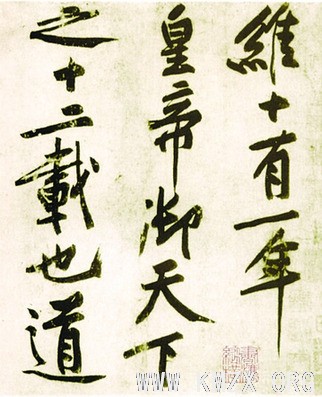 維十有一年
皇帝御天下
之十二載也道
WWW.KWZX.ORG